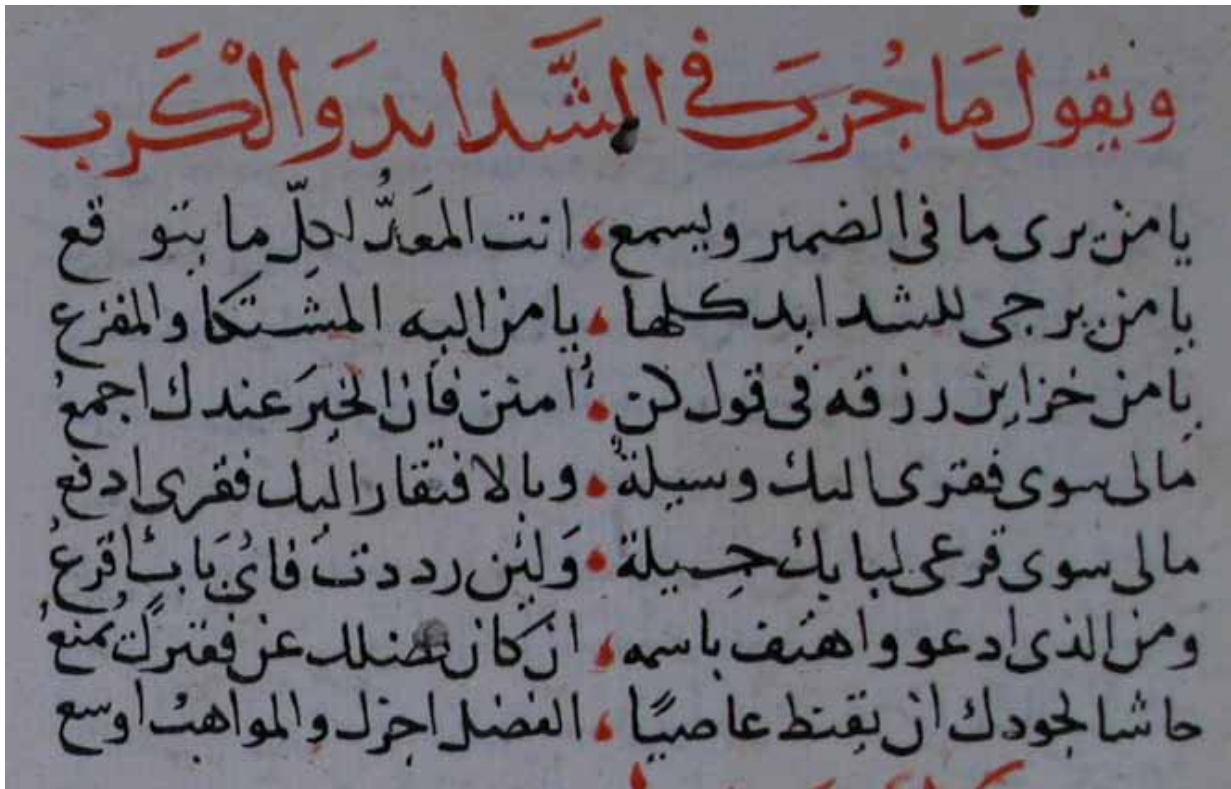 ويقول ما جرب في الشدايد والكرب
يا من يرى ما في الضمير ويسمع انت المعدُّ لكلّ ما يتوقع
يا من يرجى للشدايد كلها يا من اليه المشتكا والمفزع
يا من خزاين رزقه في قول كن امنن فان الخيرَ عندك اجمعُ
مالى سوى فقرى اليك وسيلةٌ وبالافتقار اليك فقرى ادفعُ
مالى سوى قرعى لبابك حيلة وَلين رددتُ فاىُ بَابٍ اقرعُ
ومن الذى ادعو واهتف باسمه ان كان فضلك عن فقيركَ يُمنعُ
حاشا لجودك ان يقنط عاصيًا الفضل اجزل والمواهبُ اوسع